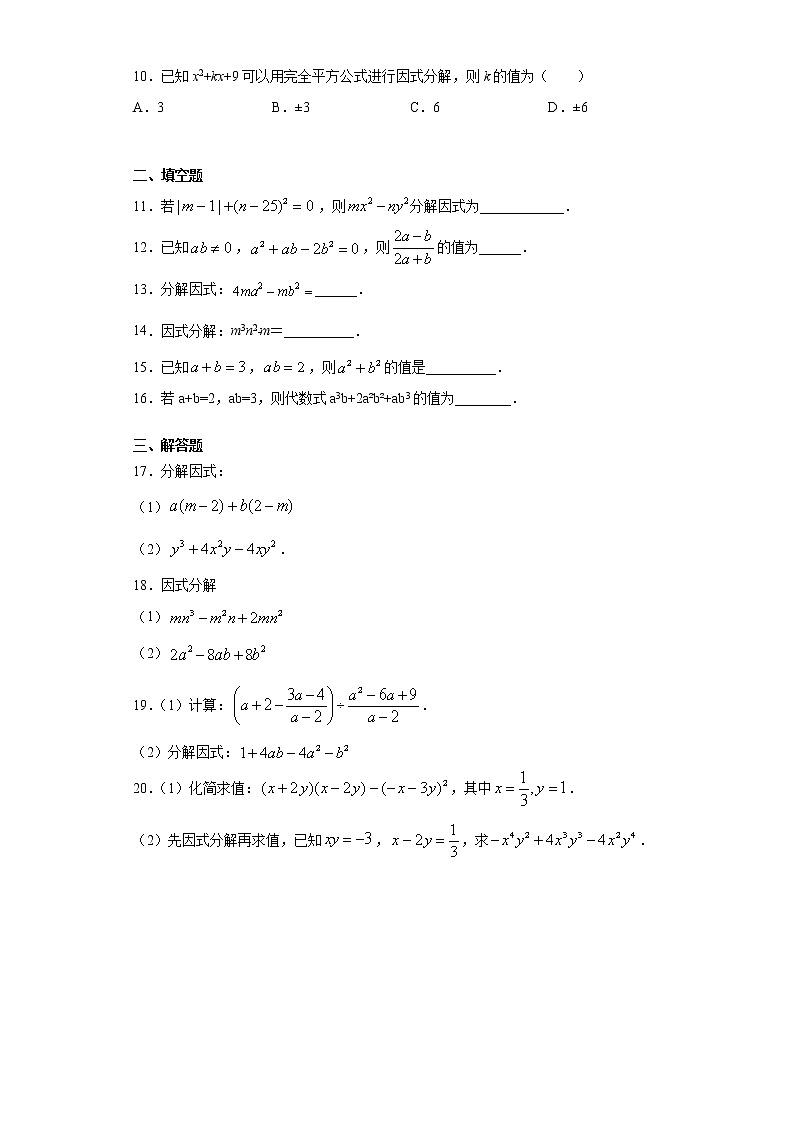 10．已知 x²+kx+9 可以用完全平方公式进行因式分解，则 k 的值为（　　）
A．3　　B．±3　　C．6　　D．±6
二、填空题
11．若|m－1|+(n－25)²＝0，则mx²－ny²分解因式为____________．
12．已知ab≠0，a²+ab－2b²＝0，则(2a－b)/(2a+b)的值为______．
13．分解因式：4ma²－mb²＝______．
14．因式分解：m³n²-m＝__________．
15．已知a+b＝3，ab＝2，则a²+b²的值是__________．
16．若 a+b=2，ab=3，则代数式 a³b+2a²b²+ab³ 的值为________．
三、解答题
17．分解因式：
（1）a(m－2)+b(2－m)
（2）y³+4x²y－4xy²．
18．因式分解
（1）mn³－m²n+2mn²
（2）2a²－8ab+8b²
19．（1）计算：(a+2－(3a－4)/(a－2))÷(a²－6a+9)/(a－2)．
（2）分解因式：1+4ab－4a²－b²
20．（1）化简求值：(x+2y)(x－2y)－(－x－3y)²，其中x＝1/3,y＝1．
（2）先因式分解再求值，已知xy＝－3，x－2y＝1/3，求－x⁴y²+4x³y³－4x²y⁴．